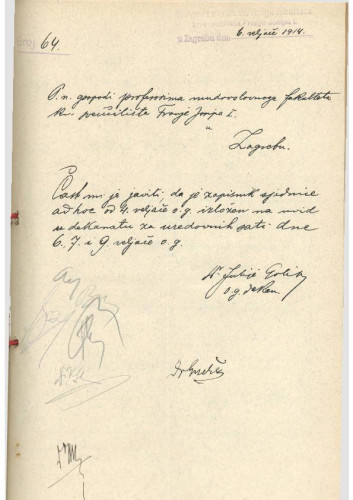 Broj 64.
6. veljače 1914.
u Zagrebu dne
P. n. gospodi profesorima mudroslovnoga fakulteta
kr. sveučilišta Franje Josipa I.
u
Zagrebu.
Čast mi je javiti, da je zapisnik sjednice
ad hoc od 4. veljače o. g. izložen na uvid
u dekanatu za uredovnih sati dne
6. 7. i 9. veljače o. g.
Dr Julije Golik
o. g. dekan.